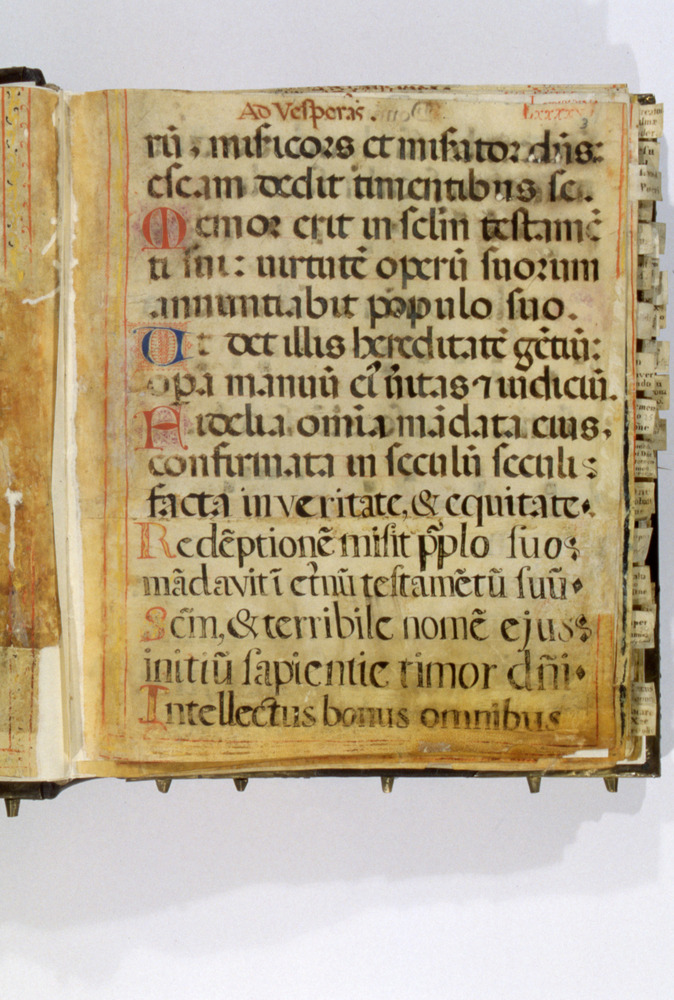 Ad Vesperas.
3
rũ, mi̴sicors et misator dñs:
escam dedit timentibus se.
Memor erit in sclm̃ testamẽ
ti sui: uirtutẽ operũ suorum
annuntiabit populo suo.
Ut det illis hereditatẽ gẽtiũ:
opa manuũ ei᷒ ũitas ⁊ iudiciũ.
Fidelia omĩa mãdata eius,
confirmata in seculũ seculi:
facta in veritate, & equitate.
Redẽptionẽ misit pp̃lo suo:
mãdavit ĩ etñũ testamẽtũ suũ.
Scm̃, & terribile nomẽ ejus:
initiũ sapientie timor dñi.
Intellectus bonus omnibus